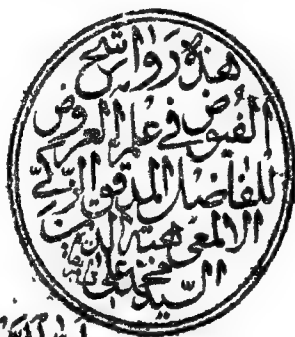 هذه رواشح
الفيوض في علم العروض
للفاضل المدقق الزكي
الالمعي هبة الدين
السيد محمد علي